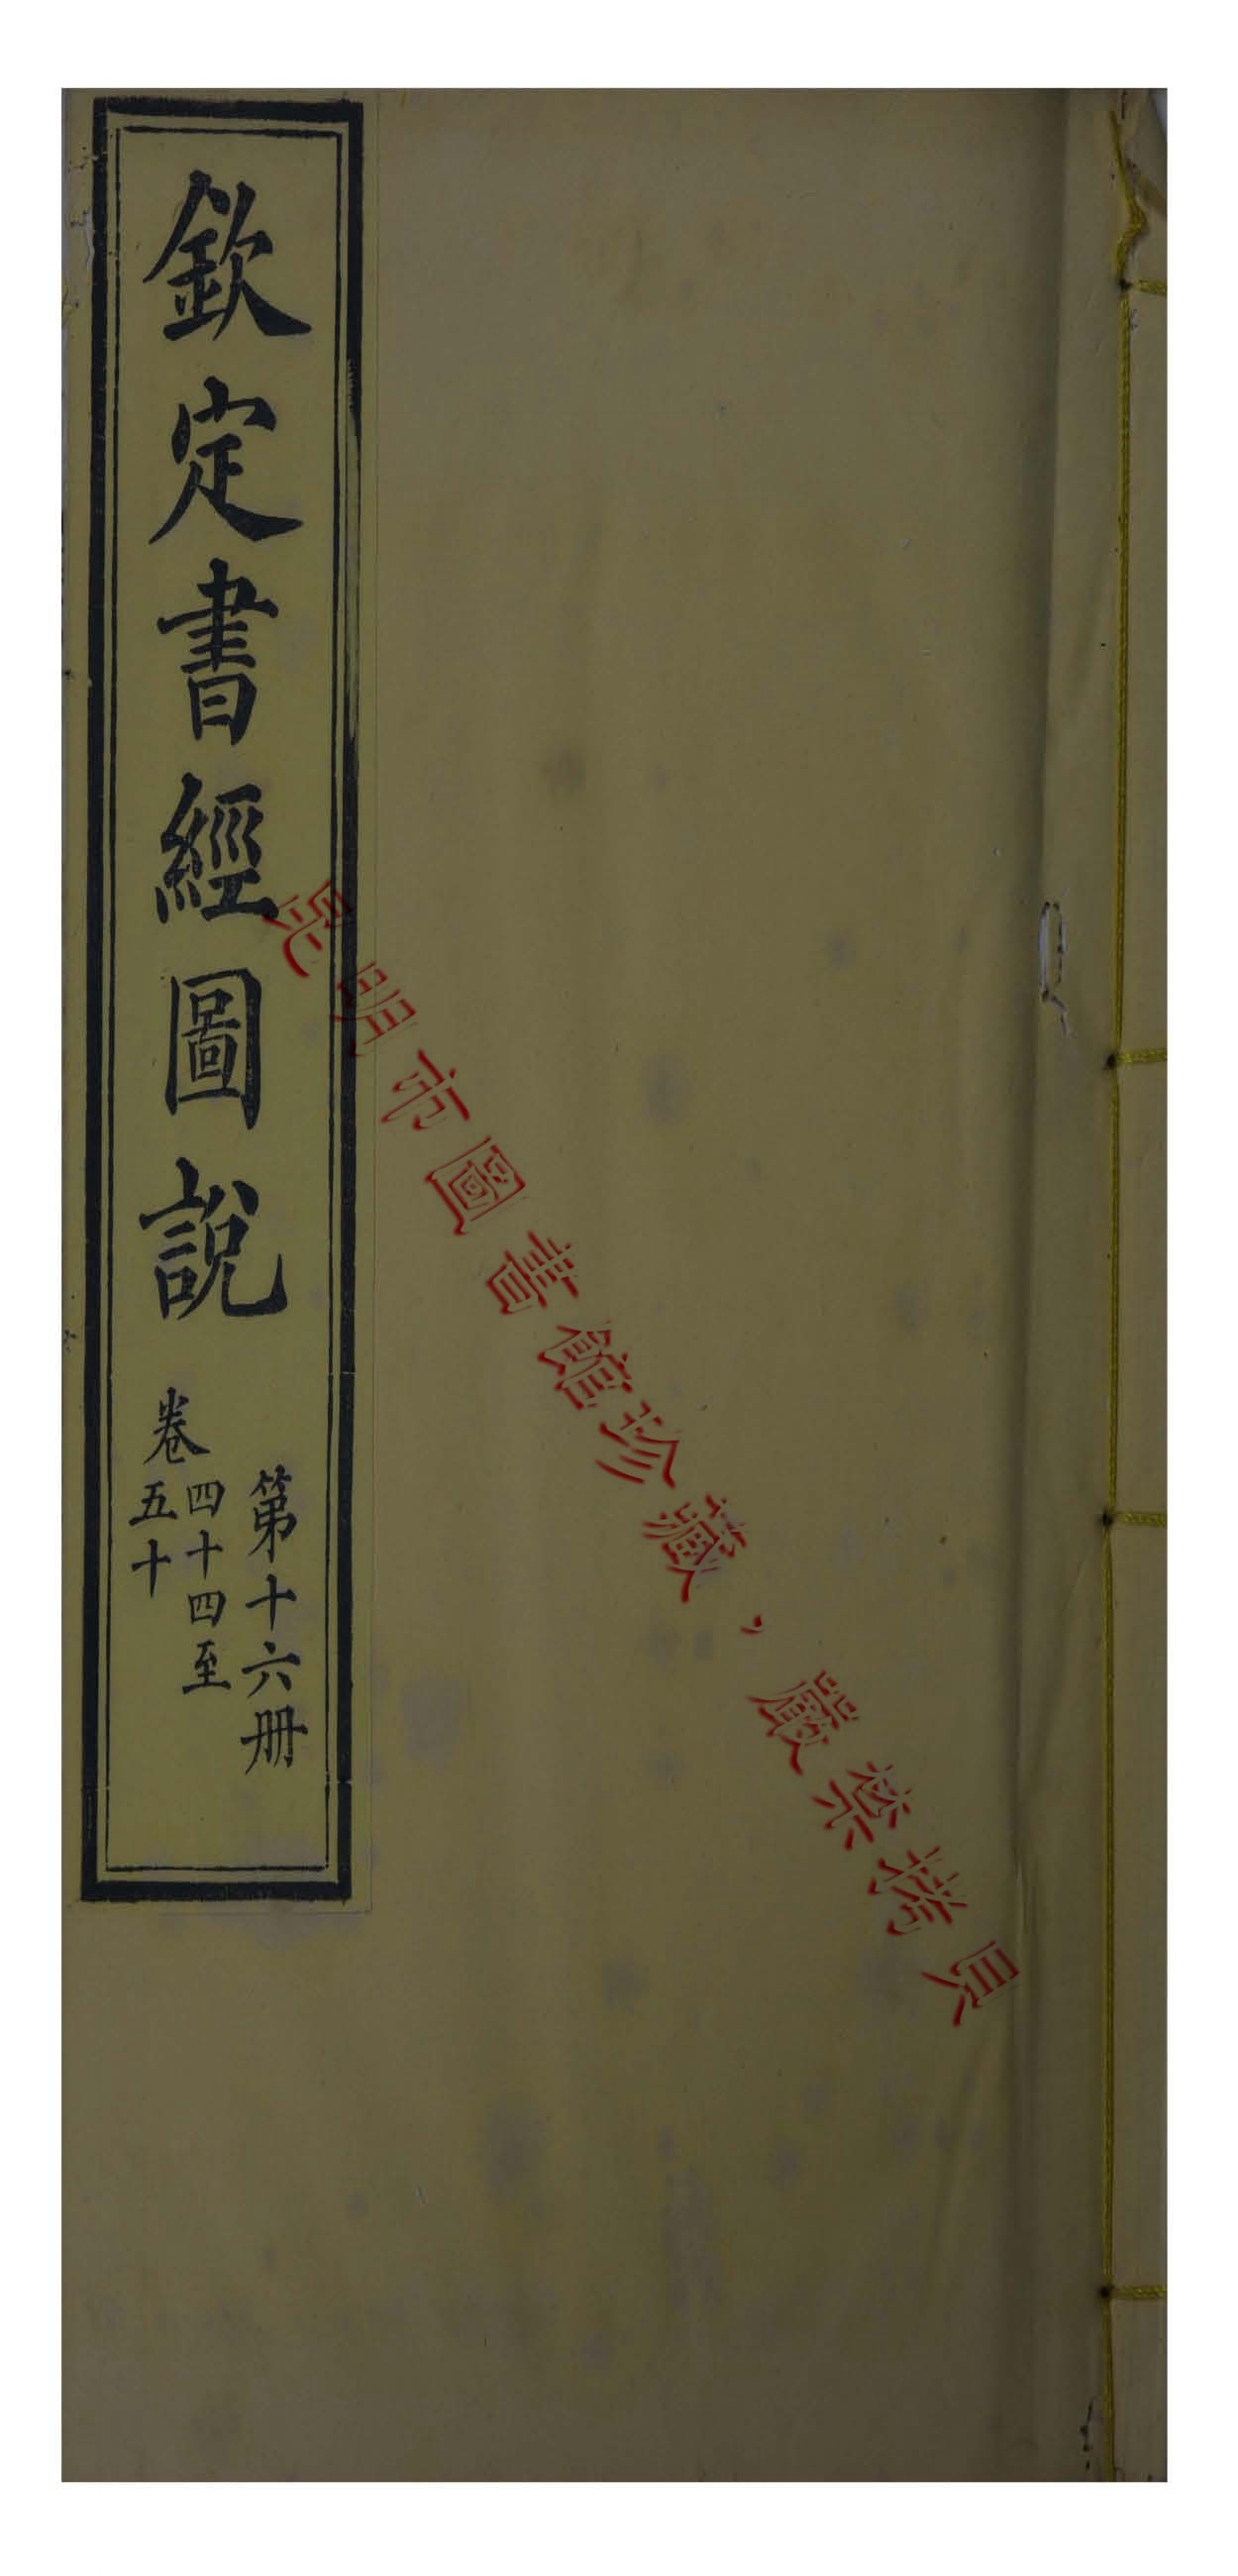 欽定書經圖說
第十六册
卷四十四至
五十
昆明市圖書館珍藏，嚴禁拷貝